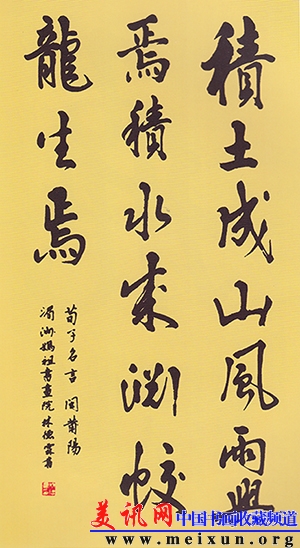 積土成山風雨興
焉積水成淵蛟
龍生焉
荀子名言 閩莆陽
湄洲媽祖書畫院林德霖書
美讯网
中国书画收藏频道
www.meixun.org